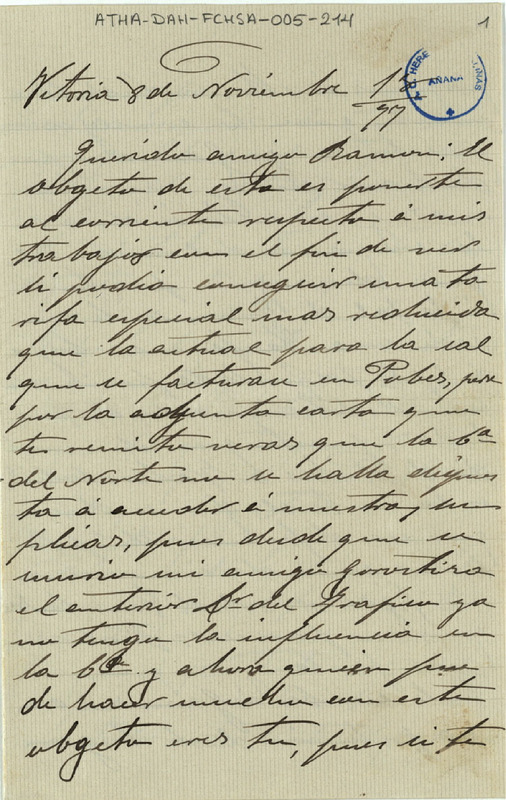 ATHA-DAH-FCHSA-005-214
1
AÑANA
Vitoria 8 de Noviembre 18
97
Querido amigo Ramon: El
obgeto de esta es ponerte
al corriente respecto á mis
trabajos con el fin de ver
si podia conseguir una ta
rifa especial mas reducida
que la actual para la sal
que se facturase en Pobes, pero
por la adjunta carta que
te remito veras que la Cª
del Norte no se halla dispues
ta á acceder á nuestras su
plicas, pues desde que se
murio mi amigo Gorostiza
el anterior Gr. del Grafico ya
no tengo la influencia en
la Cª y ahora quien pue
de hacer mucho con este
obgeto eres tu, pues si te